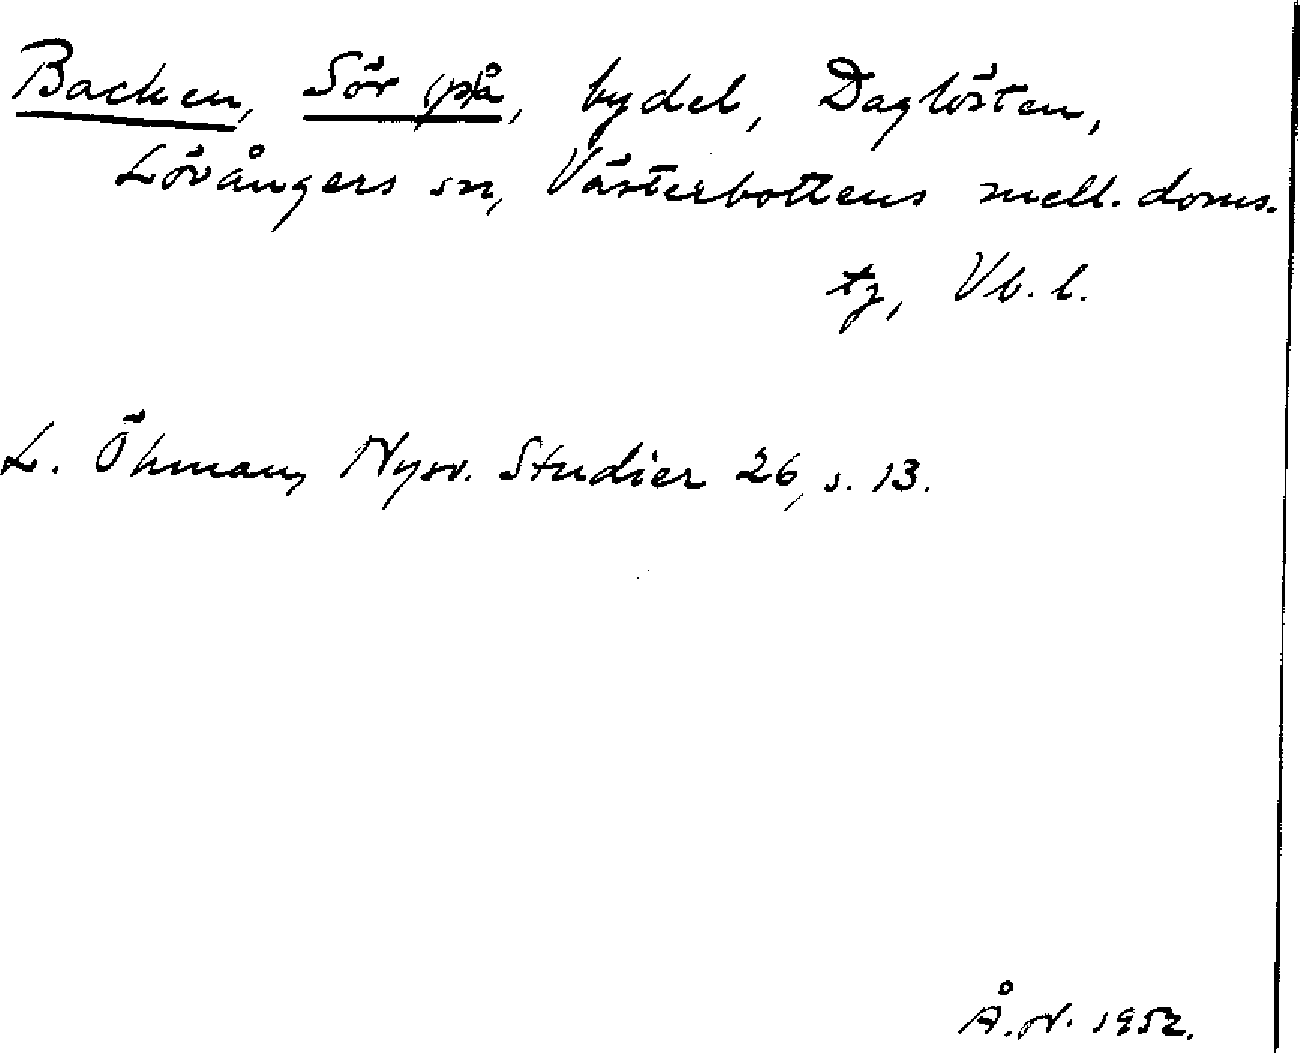 Backen, Sör på, bydel, Daglösten,
Lövångers sn, Västerbottens mell. doms.
tg, Vb. l.
L. Öhman, Nysv. Studier 26, s. 13.
Å. N. 1952.